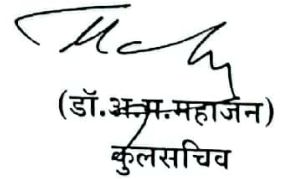 (डॉ.अ.म.महाजन)
कुलसचिव